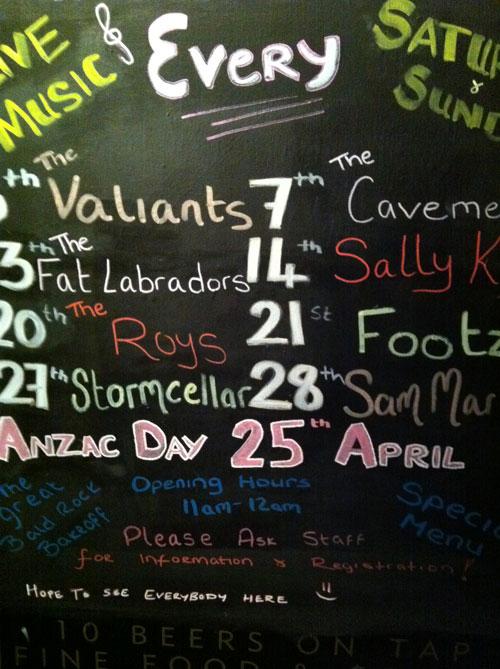 IVE MUSIC
EVERY
SATUR
& SUND
th The Valiants
7th The Caveme
3th The Fat Labradors
14th Sally K
20th The Roys
21st Footz
27th Stormcellar
28th Sam Mar
ANZAC DAY 25th APRIL
The Great Bald Rock Bakeoff
Opening Hours
11am-12am
Speci
Menu
Please Ask Staff
for Information & Registration!
HOPE TO SEE EVERYBODY HERE
10 BEERS ON TAP
FINE FOOD &